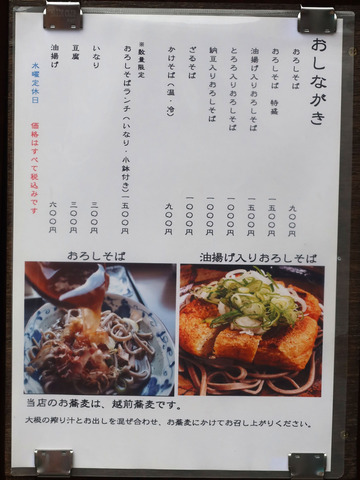 おしながき
おろしそば 九〇〇円
おろしそば 特盛 一五〇〇円
油揚げ入りおろしそば 一五〇〇円
とろろ入りおろしそば 一〇〇〇円
納豆入りおろしそば 一〇〇〇円
ざるそば 一〇〇〇円
かけそば(温・冷) 九〇〇円
※数量限定
おろしそばランチ(いなり・小鉢付き)一五〇〇円
いなり 三〇〇円
豆腐 三〇〇円
油揚げ 六〇〇円
価格はすべて税込みです
水曜定休日
おろしそば
油揚げ入りおろしそば
当店のお蕎麦は、越前蕎麦です。
大根の搾り汁とお出しを混ぜ合わせ、お蕎麦にかけてお召し上がりください。